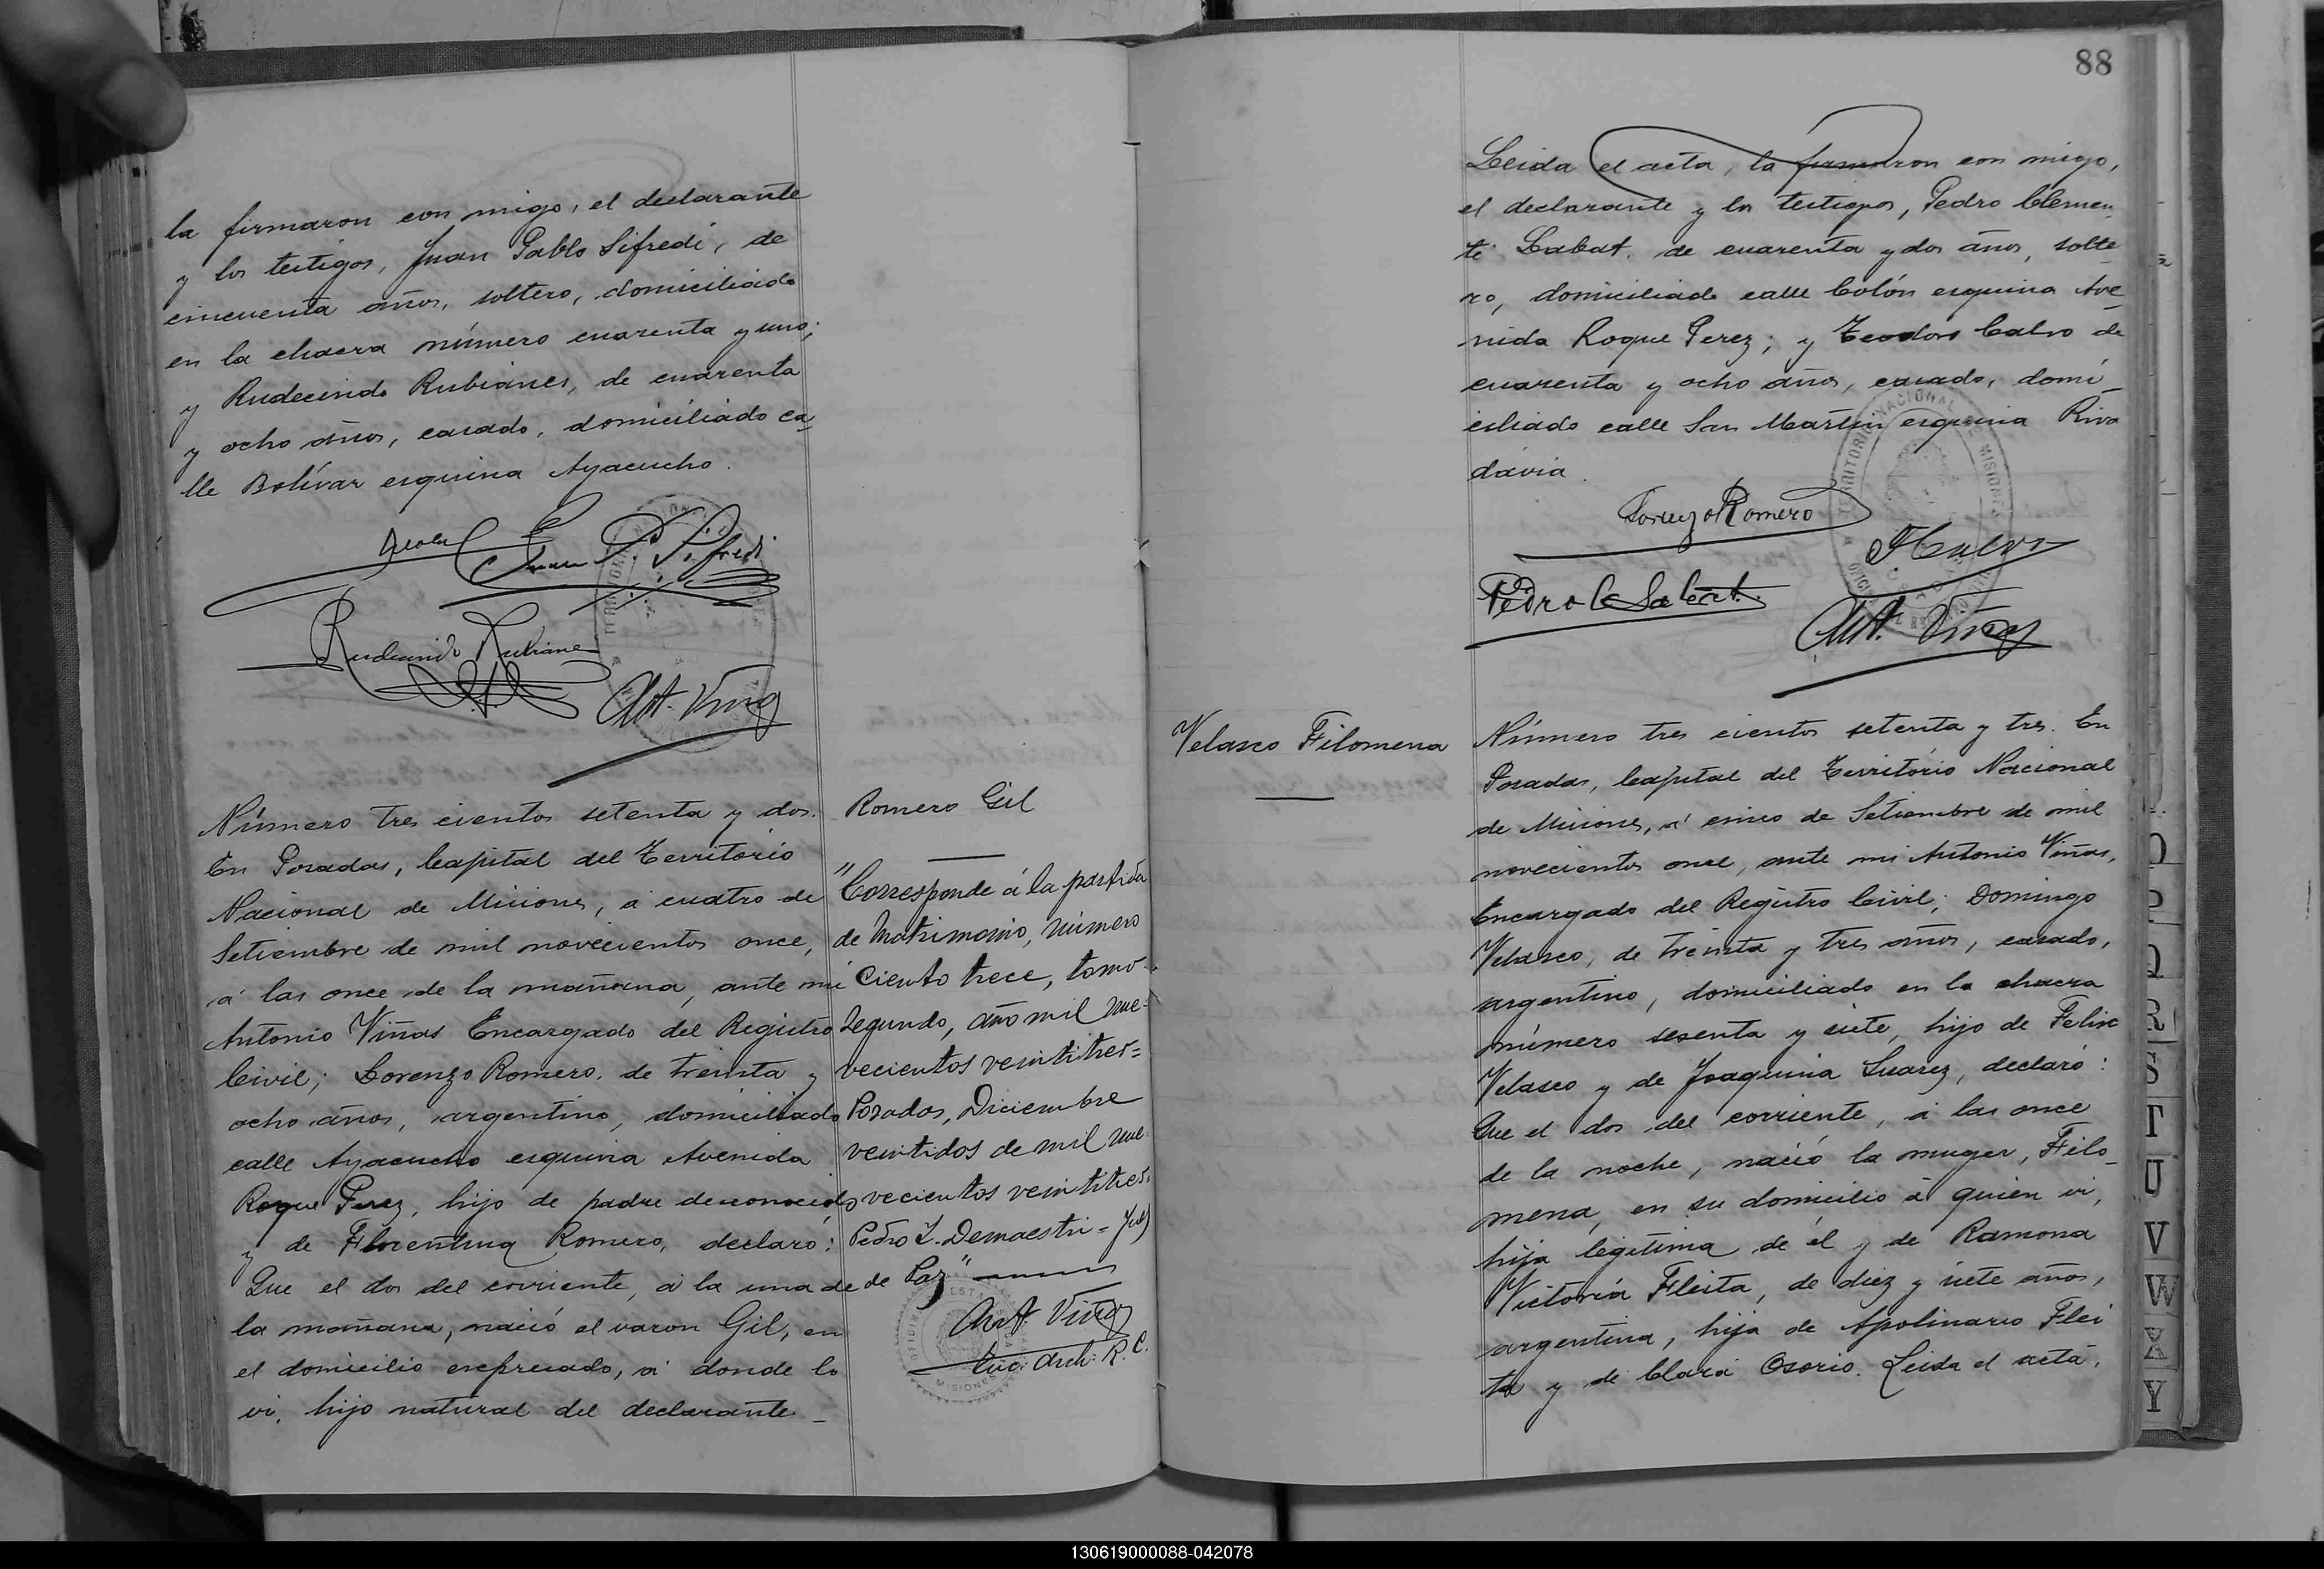 la firmaron con migo, el declarante
y los testigos, Juan Pablo Sifredi, de
cincuenta años, soltero, domiciliado
en la chacra número cuarenta y uno;
y Rudecindo Rubianes, de cuarenta
y ocho años, casado, domiciliado ca
lle Bolívar esquina Ayacucho.
Juan P. Sifredi
Rudecindo Rubiane
Ant. Viñas
Número tres cientos setenta y dos.
En Posadas, Capital del Territorio
Nacional de Misiones, á cuatro de
Setiembre de mil novecientos once,
á las once de la mañana, ante mi
Antonio Viñas Encargado del Registro
Civil; Lorenzo Romero, de treinta y
ocho años, argentino, domiciliado
calle Ayacucho esquina Avenida
Roque Perez, hijo de padre desconocido
y de Florentina Romero, declaró:
Que el dos del corriente, á la una de
la mañana, nació el varon Gil, en
el domicilio expresado, á donde lo
vi, hijo natural del declarante _
Romero Gil
"Corresponde á la partida
de Matrimonio, número
Ciento trece, tomo
Segundo, año mil nue=
vecientos veintitres=
Posadas, Diciembre
veintidos de mil nue
vecientos veintitres.
Pedro I. Demaestri = Juez
de Paz"
Ant. Viñas
Enc: Arch: R. C.
88
Leida el acta, la firmaron con migo,
el declarante y los testigos, Pedro Clemen
te Labat, de cuarenta y dos años, solte
ro, domiciliado calle Colón esquina Ave
nida Roque Perez; y Teodoro Calvo de
cuarenta y ocho años, casado, domi
ciliado calle San Martin esquina Riva
davia.
TERRITORIO NACIONAL DE MISIONES
Lorenzo Romero
TCalvo
Pedro C Labat.
Ant. Viñas
Velasco Filomena
Número tres cientos setenta y tres. En
Posadas, Capital del Territorio Nacional
de Misiones, á cinco de Setiembre de mil
novecientos once, ante mi Antonio Viñas,
Encargado del Registro Civil; Domingo
Velasco, de treinta y tres años, casado,
argentino, domiciliado en la chacra
número sesenta y siete, hijo de Felix
Velasco y de Joaquina Suarez, declaró:
Que el dos del corriente, á las once
de la noche, nació la muger, Filo_
mena, en su domicilio á quien vi,
hija legitima de él y de Ramona
Victoria Fleita, de diez y siete años,
argentina, hija de Apolinario Flei
ta y de Clara Osorio. Leida el acta,
O
P
Q
R
S
T
U
V
W
X
Y
130619000088-042078